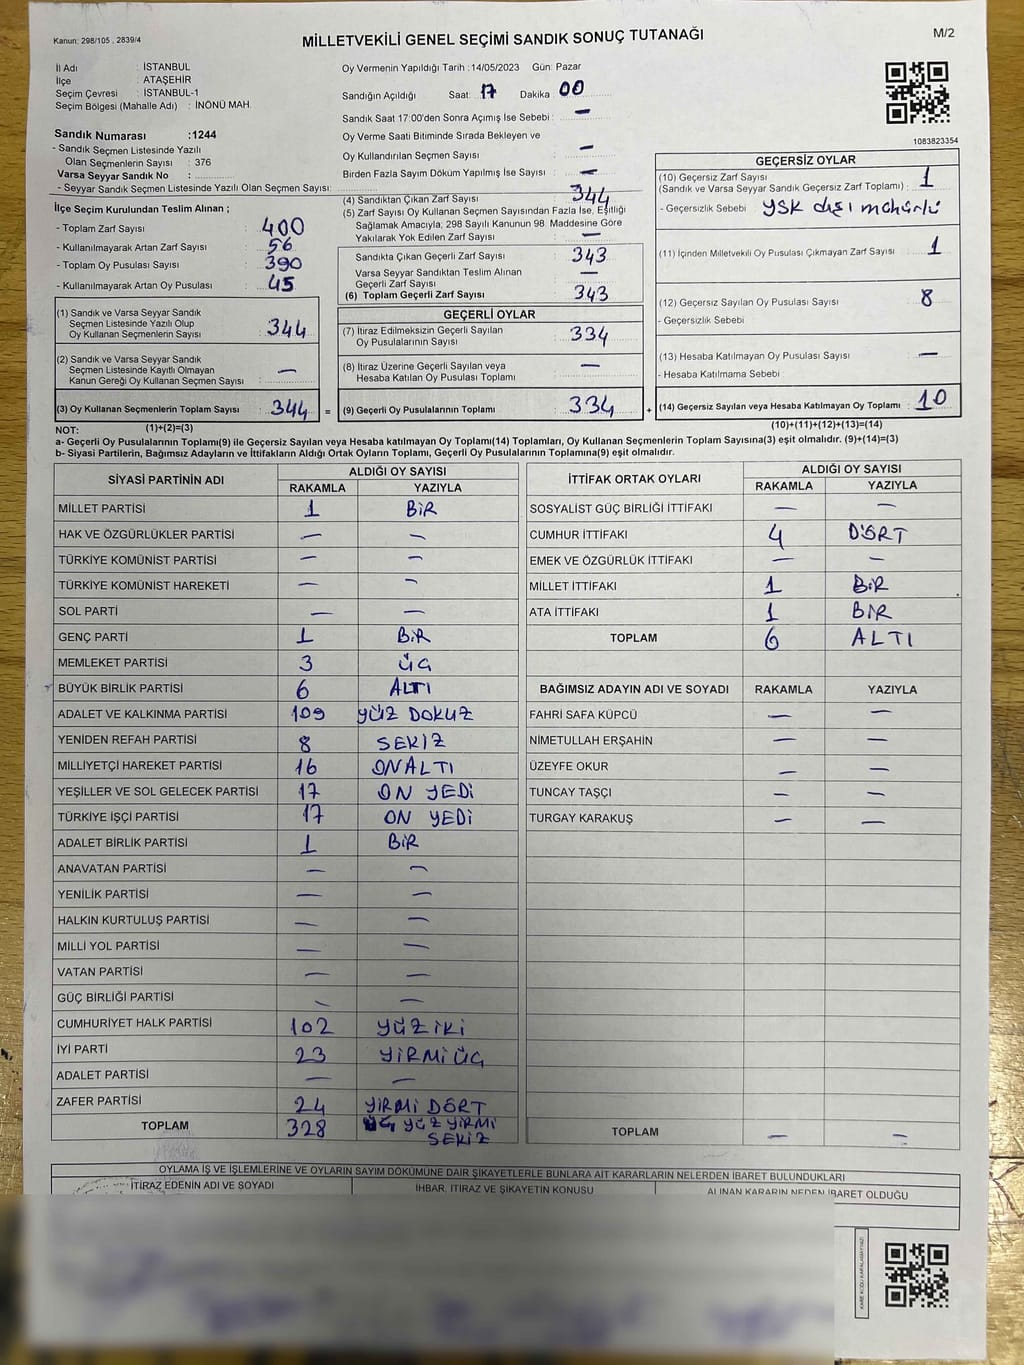 Kanun: 298/105 , 2839/4
MİLLETVEKİLİ GENEL SEÇİMİ SANDIK SONUÇ TUTANAĞI
M/2
İl Adı : İSTANBUL
İlçe : ATAŞEHİR
Seçim Çevresi : İSTANBUL-1
Seçim Bölgesi (Mahalle Adı) : İNÖNÜ MAH.
Sandık Numarası :1244
- Sandık Seçmen Listesinde Yazılı
Olan Seçmenlerin Sayısı : 376
Varsa Seyyar Sandık No :
- Seyyar Sandık Seçmen Listesinde Yazılı Olan Seçmen Sayısı:
Oy Vermenin Yapıldığı Tarih :14/05/2023 Gün: Pazar
Sandığın Açıldığı Saat: 17 Dakika 00
Sandık Saat 17:00'den Sonra Açımış İse Sebebi : —
Oy Verme Saati Bitiminde Sırada Bekleyen ve
Oy Kullandırılan Seçmen Sayısı : —
Birden Fazla Sayım Döküm Yapılmış İse Sayısı : —
1083823354
İlçe Seçim Kurulundan Teslim Alınan ;
- Toplam Zarf Sayısı : 400
- Kullanılmayarak Artan Zarf Sayısı : 56
- Toplam Oy Pusulası Sayısı : 390
- Kullanılmayarak Artan Oy Pusulası : 45
(1) Sandık ve Varsa Seyyar Sandık
Seçmen Listesinde Yazılı Olup
Oy Kullanan Seçmenlerin Sayısı : 344
(2) Sandık ve Varsa Seyyar Sandık
Seçmen Listesinde Kayıtlı Olmayan
Kanun Gereği Oy Kullanan Seçmen Sayısı : —
(3) Oy Kullanan Seçmenlerin Toplam Sayısı : 344 =
(4) Sandıktan Çıkan Zarf Sayısı : 344
(5) Zarf Sayısı Oy Kullanan Seçmen Sayısından Fazla İse, Eşitliği
Sağlamak Amacıyla; 298 Sayılı Kanunun 98. Maddesine Göre
Yakılarak Yok Edilen Zarf Sayısı : —
Sandıkta Çıkan Geçerli Zarf Sayısı : 343
Varsa Seyyar Sandıktan Teslim Alınan
Geçerli Zarf Sayısı : —
(6) Toplam Geçerli Zarf Sayısı : 343
GEÇERLİ OYLAR
(7) İtiraz Edilmeksizin Geçerli Sayılan
Oy Pusulalarının Sayısı : 334
(8) İtiraz Üzerine Geçerli Sayılan veya
Hesaba Katılan Oy Pusulası Toplamı : —
(9) Geçerli Oy Pusulalarının Toplamı : 334 +
GEÇERSİZ OYLAR
(10) Geçersiz Zarf Sayısı
(Sandık ve Varsa Seyyar Sandık Geçersiz Zarf Toplamı) : 1
- Geçersizlik Sebebi : YSK dışı mühürlü
(11) İçinden Milletvekili Oy Pusulası Çıkmayan Zarf Sayısı : 1
(12) Geçersiz Sayılan Oy Pusulası Sayısı : 8
- Geçersizlik Sebebi
(13) Hesaba Katılmayan Oy Pusulası Sayısı : —
- Hesaba Katılmama Sebebi :
(14) Geçersiz Sayılan veya Hesaba Katılmayan Oy Toplamı : 10
NOT: (1)+(2)=(3) (10)+(11)+(12)+(13)=(14)
a- Geçerli Oy Pusulalarının Toplamı(9) ile Geçersiz Sayılan veya Hesaba katılmayan Oy Toplamı(14) Toplamları, Oy Kullanan Seçmenlerin Toplam Sayısına(3) eşit olmalıdır. (9)+(14)=(3)
b- Siyasi Partilerin, Bağımsız Adayların ve İttifakların Aldığı Ortak Oyların Toplamı, Geçerli Oy Pusulalarının Toplamına(9) eşit olmalıdır.
SİYASİ PARTİNİN ADI ALDIĞI OY SAYISI
RAKAMLA YAZIYLA
MİLLET PARTİSİ 1 BİR
HAK VE ÖZGÜRLÜKLER PARTİSİ — —
TÜRKİYE KOMÜNİST PARTİSİ — —
TÜRKİYE KOMÜNİST HAREKETİ — —
SOL PARTİ — —
GENÇ PARTİ 1 BİR
MEMLEKET PARTİSİ 3 ÜÇ
BÜYÜK BİRLİK PARTİSİ 6 ALTI
ADALET VE KALKINMA PARTİSİ 109 YÜZ DOKUZ
YENİDEN REFAH PARTİSİ 8 SEKİZ
MİLLİYETÇİ HAREKET PARTİSİ 16 ONALTI
YEŞİLLER VE SOL GELECEK PARTİSİ 17 ON YEDİ
TÜRKİYE İŞÇİ PARTİSİ 17 ON YEDİ
ADALET BİRLİK PARTİSİ 1 BİR
ANAVATAN PARTİSİ — —
YENİLİK PARTİSİ — —
HALKIN KURTULUŞ PARTİSİ — —
MİLLİ YOL PARTİSİ — —
VATAN PARTİSİ — —
GÜÇ BİRLİĞİ PARTİSİ — —
CUMHURİYET HALK PARTİSİ 102 YÜZ İKİ
İYİ PARTİ 23 YİRMİ ÜÇ
ADALET PARTİSİ — —
ZAFER PARTİSİ 24 YİRMİ DÖRT
TOPLAM 328 ÜÇ YÜZ YİRMİ
SEKİZ
İTTİFAK ORTAK OYLARI ALDIĞI OY SAYISI
RAKAMLA YAZIYLA
SOSYALİST GÜÇ BİRLİĞİ İTTİFAKI — —
CUMHUR İTTİFAKI 4 DÖRT
EMEK VE ÖZGÜRLÜK İTTİFAKI — —
MİLLET İTTİFAKI 1 BİR
ATA İTTİFAKI 1 BİR
TOPLAM 6 ALTI
BAĞIMSIZ ADAYIN ADI VE SOYADI RAKAMLA YAZIYLA
FAHRİ SAFA KÜPCÜ — —
NİMETULLAH ERŞAHİN — —
ÜZEYFE OKUR — —
TUNCAY TAŞÇI — —
TURGAY KARAKUŞ — —
TOPLAM — —
OYLAMA İŞ VE İŞLEMLERİNE VE OYLARIN SAYIM DÖKÜMÜNE DAİR ŞİKAYETLERLE BUNLARA AİT KARARLARIN NELERDEN İBARET BULUNDUKLARI
İTİRAZ EDENİN ADI VE SOYADI İHBAR, İTİRAZ VE ŞİKAYETİN KONUSU ALINAN KARARIN NEDEN İBARET OLDUĞU
KARE KODU KARALAMAYINIZ!